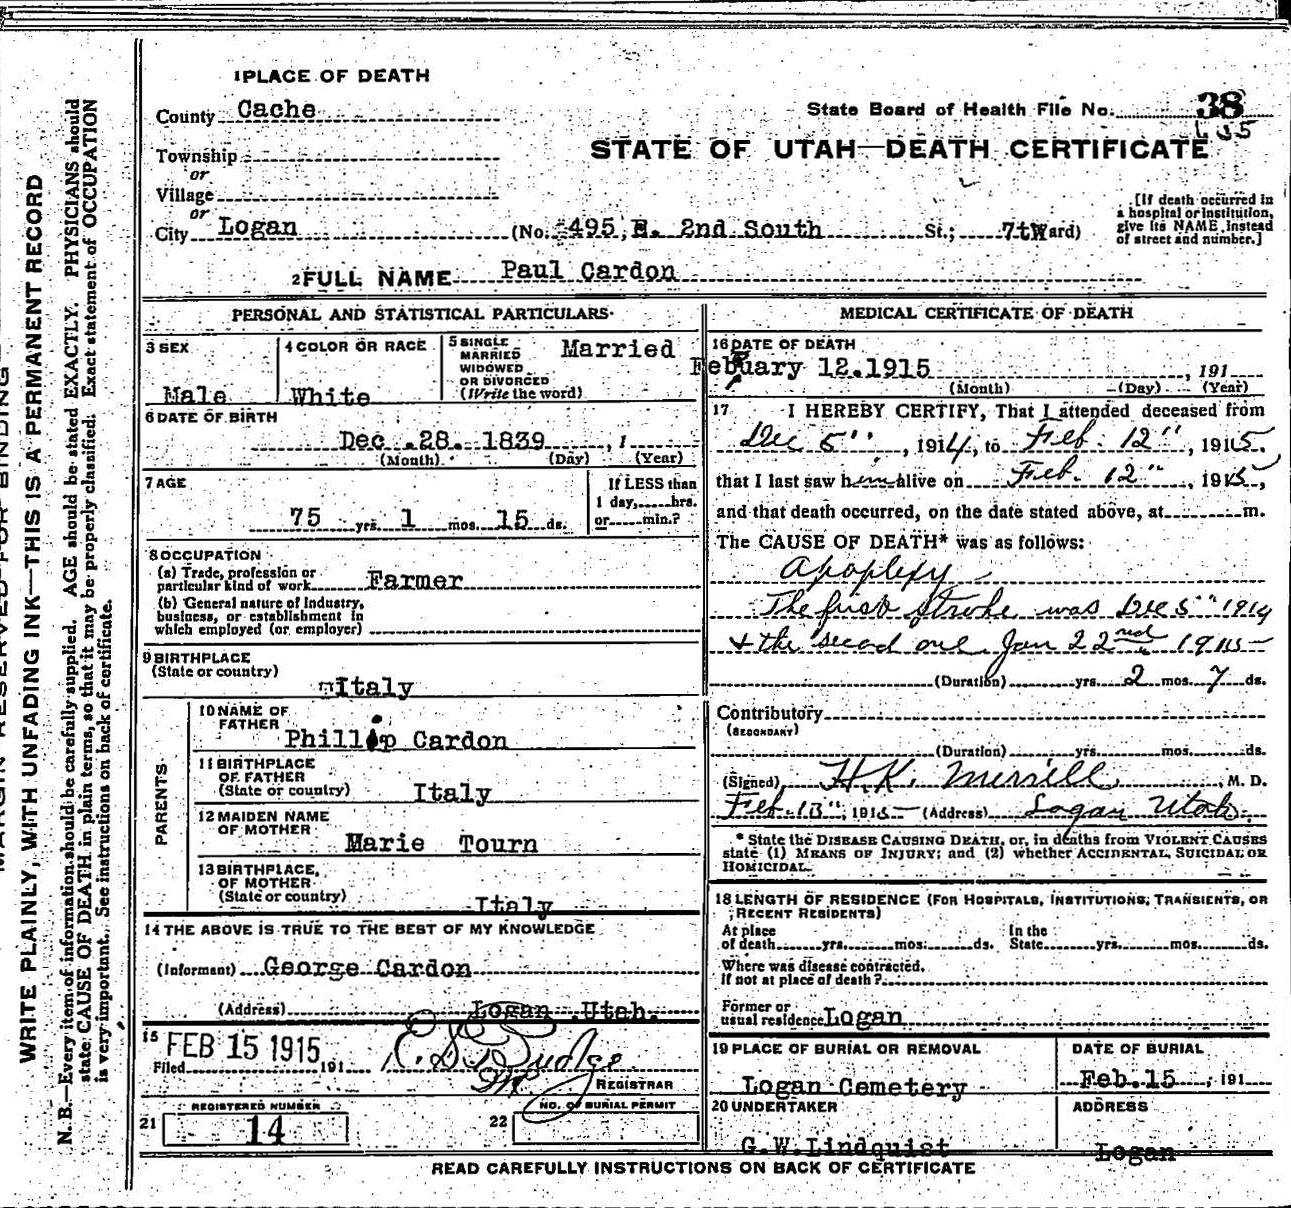 1 PLACE OF DEATH
County Cache
State Board of Health File No. 38
Township
or
STATE OF UTAH—DEATH CERTIFICATE
Village
or
City Logan (No. 495, E. 2nd South St.; 7th Ward)
[If death occurred in
a hospital or institution,
give its NAME instead
of street and number.]
2 FULL NAME Paul Cardon
PERSONAL AND STATISTICAL PARTICULARS
3 SEX
Male
4 COLOR OR RACE
White
5 SINGLE
MARRIED
WIDOWED
OR DIVORCED
(Write the word)
Married
6 DATE OF BIRTH
Dec .28. 1839 , 1
(Month) (Day) (Year)
7 AGE
75 yrs. 1 mos. 15 ds.
If LESS than
1 day, hrs.
or min.?
8 OCCUPATION
(a) Trade, profession or
particular kind of work Farmer
(b) General nature of Industry,
business, or establishment in
which employed (or employer)
9 BIRTHPLACE
(State or country)
Italy
PARENTS
10 NAME OF
FATHER
Phillip Cardon
11 BIRTHPLACE
OF FATHER
(State or country) Italy
12 MAIDEN NAME
OF MOTHER
Marie Tourn
13 BIRTHPLACE
OF MOTHER
(State or country)
Italy
14 THE ABOVE IS TRUE TO THE BEST OF MY KNOWLEDGE
(Informant) George Cardon
(Address) Logan .Utah.
15
FEB 15 1915
Filed 191
REGISTRAR
REGISTERED NUMBER
21 14
NO. OF BURIAL PERMIT
22
MEDICAL CERTIFICATE OF DEATH
16 DATE OF DEATH
Febuary 12.1915 , 191
(Month) (Day) (Year)
17 I HEREBY CERTIFY, That I attended deceased from
Dec 5", 1914, to Feb. 12", 1915,
that I last saw him alive on Feb. 12", 1915,
and that death occurred, on the date stated above, at m.
The CAUSE OF DEATH* was as follows:
Apoplexy
The first stroke was Dec 5" 1914
& the second one Jan 22nd 1915
(Duration) yrs. 2 mos. 7 ds.
Contributory
(SECONDARY)
(Duration) yrs. mos. ds.
(Signed) H.K. Merrill, M. D.
Feb. 13", 1915 (Address) Logan Utah.
* State the DISEASE CAUSING DEATH, or, in deaths from VIOLENT CAUSES
state (1) MEANS OF INJURY; and (2) whether ACCIDENTAL, SUICIDAL OR
HOMICIDAL.
18 LENGTH OF RESIDENCE (FOR HOSPITALS, INSTITUTIONS, TRANSIENTS, OR
RECENT RESIDENTS)
At place
of death yrs. mos. ds.
In the
State yrs. mos. ds.
Where was disease contracted,
If not at place of death?
Former or
usual residence Logan
19 PLACE OF BURIAL OR REMOVAL
Logan Cemetery
DATE OF BURIAL
Feb. 15 , 191
20 UNDERTAKER
G. W. Lindquist
ADDRESS
Logan
READ CAREFULLY INSTRUCTIONS ON BACK OF CERTIFICATE
MARGIN RESERVED FOR BINDING
WRITE PLAINLY, WITH UNFADING INK—THIS IS A PERMANENT RECORD
N. B.—Every item of information should be carefully supplied. AGE should be stated EXACTLY. PHYSICIANS should
state CAUSE OF DEATH in plain terms, so that it may be properly classified. Exact statement of OCCUPATION
is very important. See instructions on back of certificate.